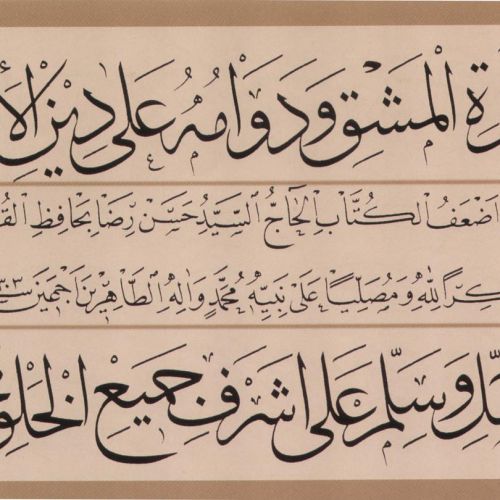 ة الْمَشْقِ وَدَوَامُهُ عَلَى دِينِ الْأ
اَضْعَفُ الْكُتَّابِ الْحَاجُّ السَّيِّدُ حَسَنْ رِضَا بِحَافِظِ الْقُ
كِرًا لِلّٰهِ وَمُصَلِّيًا عَلَى نَبِيِّهِ مُحَمَّدٍ وَآلِهِ الطَّاهِرِينَ اَجْمَعِينَ
لِّ وَسَلِّمْ عَلَى اَشْرَفِ جَمِيعِ الْخَلَائِ